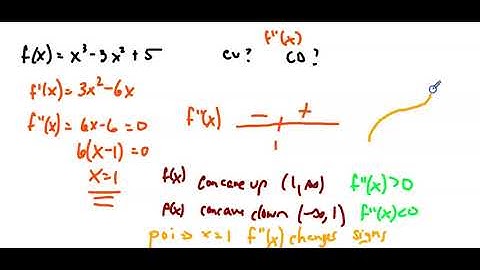 f(x) = x³ - 3x² + 5
f'(x) = 3x² - 6x
f''(x) = 6x - 6 = 0
6(x - 1) = 0
x = 1
f''(x)
CU? CD?
f''(x) - +
1
f(x) concave up (1, ∞) f''(x) > 0
f(x) concave down (-∞, 1) f''(x) < 0
poi ⇒ x = 1 f''(x) changes signs